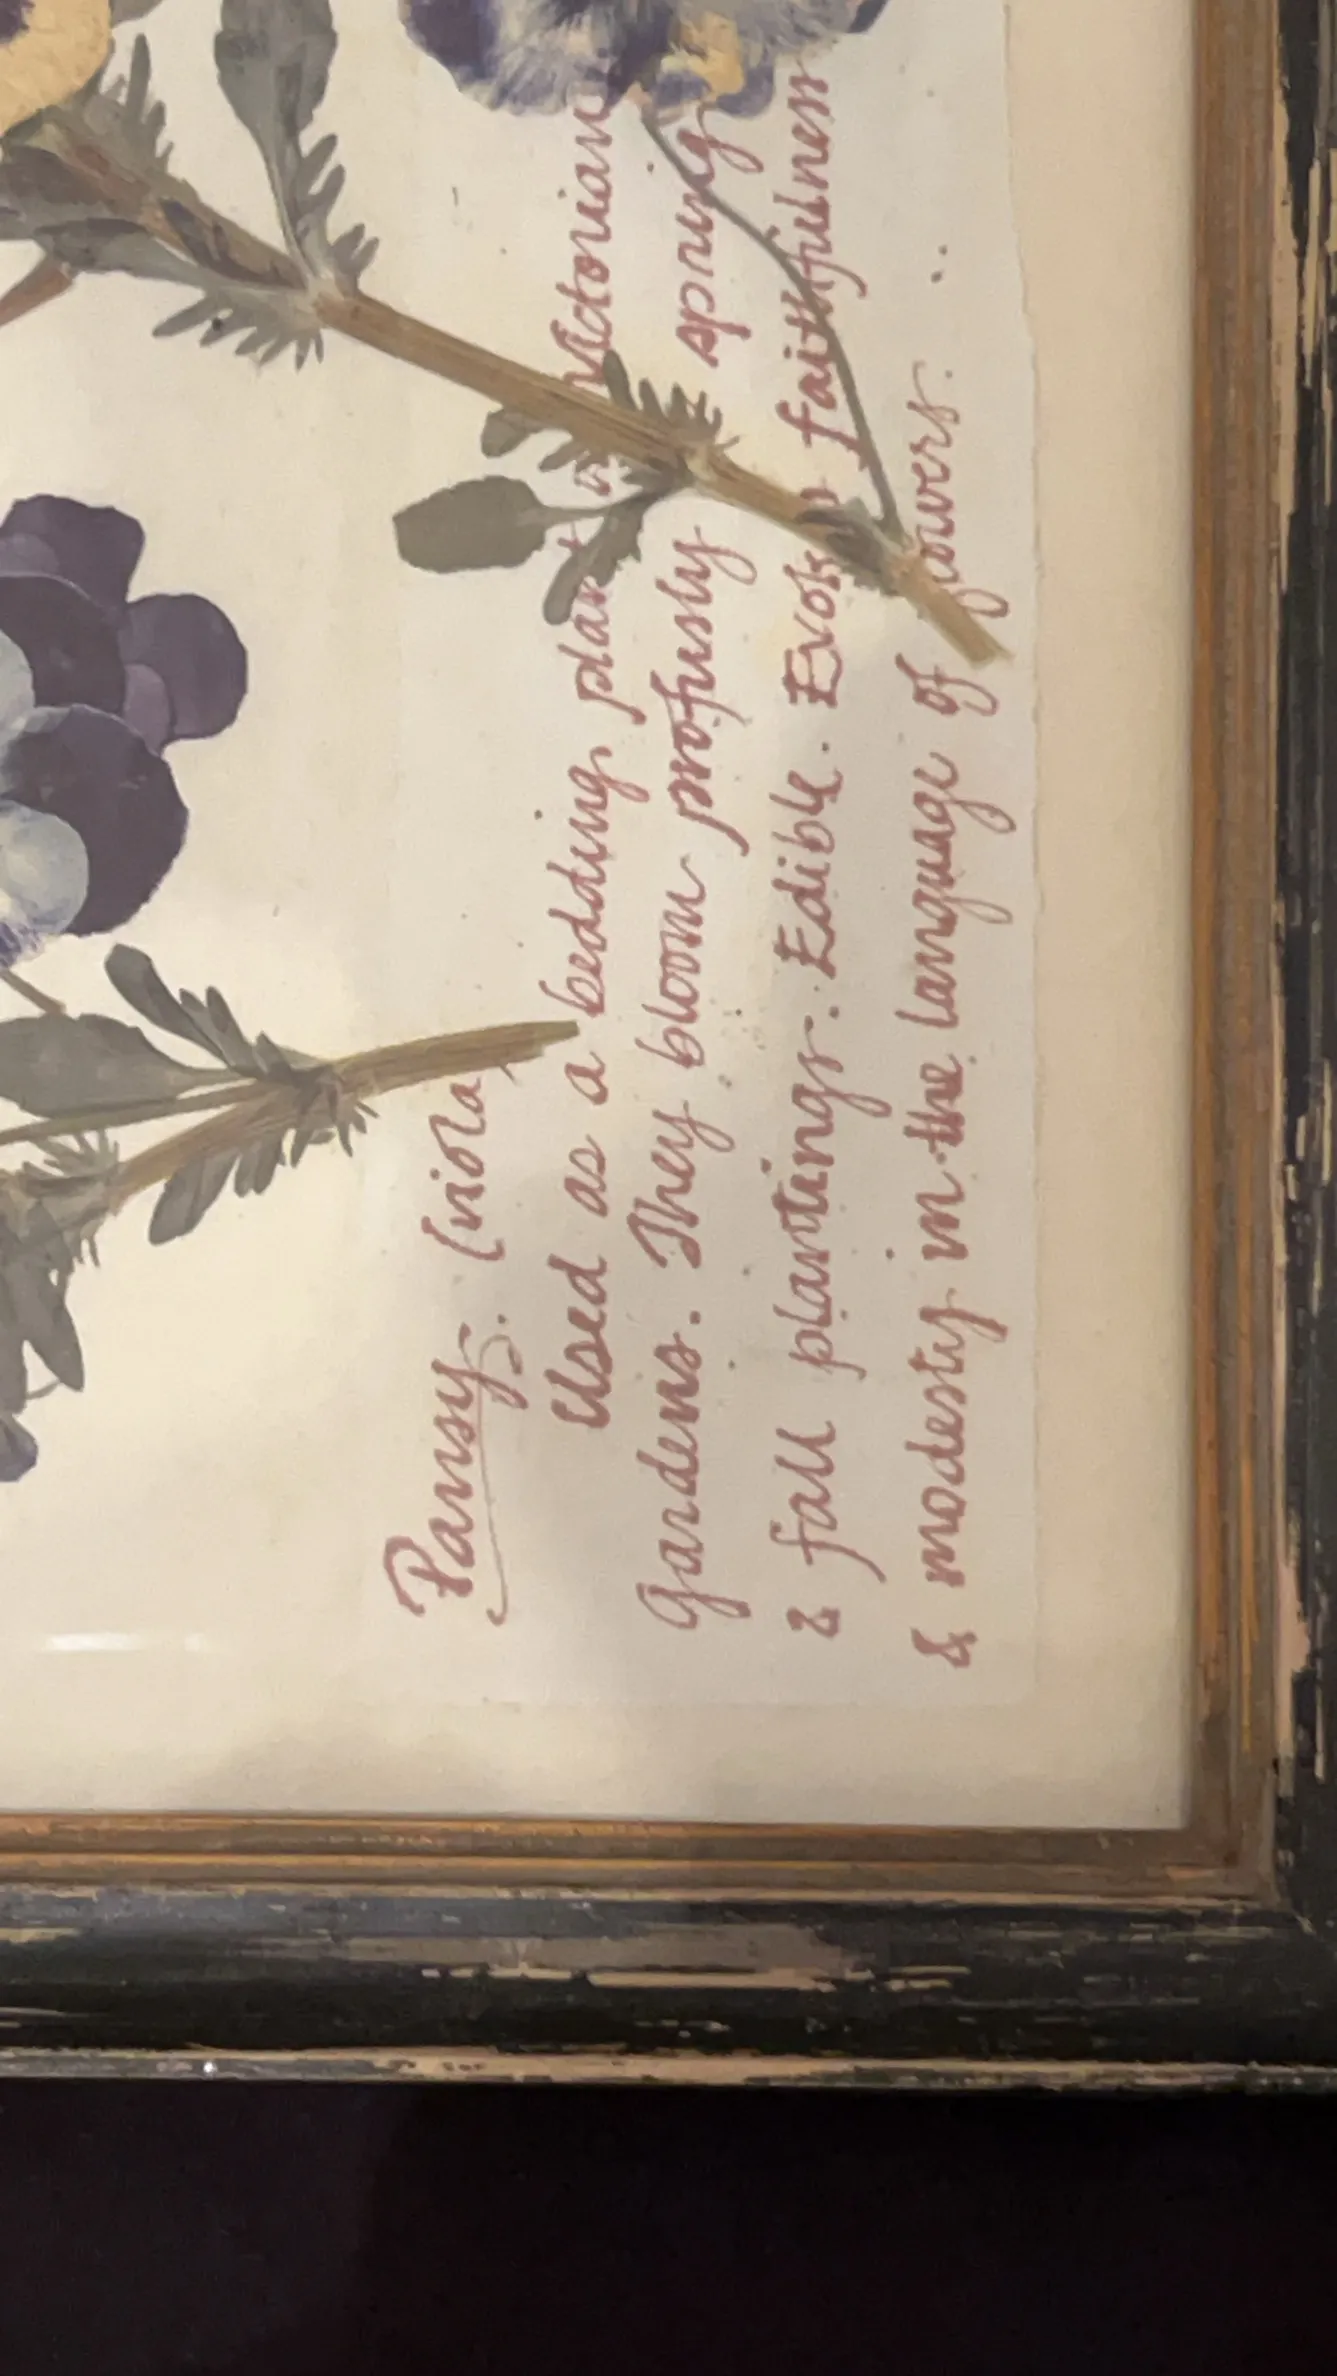 Pansy. (viola,
Used as a bedding plant in Victorian
Gardens. They bloom profusly spring
& fall plantings. Edible. Evok faithfulness
& modesty in the language of flowers.